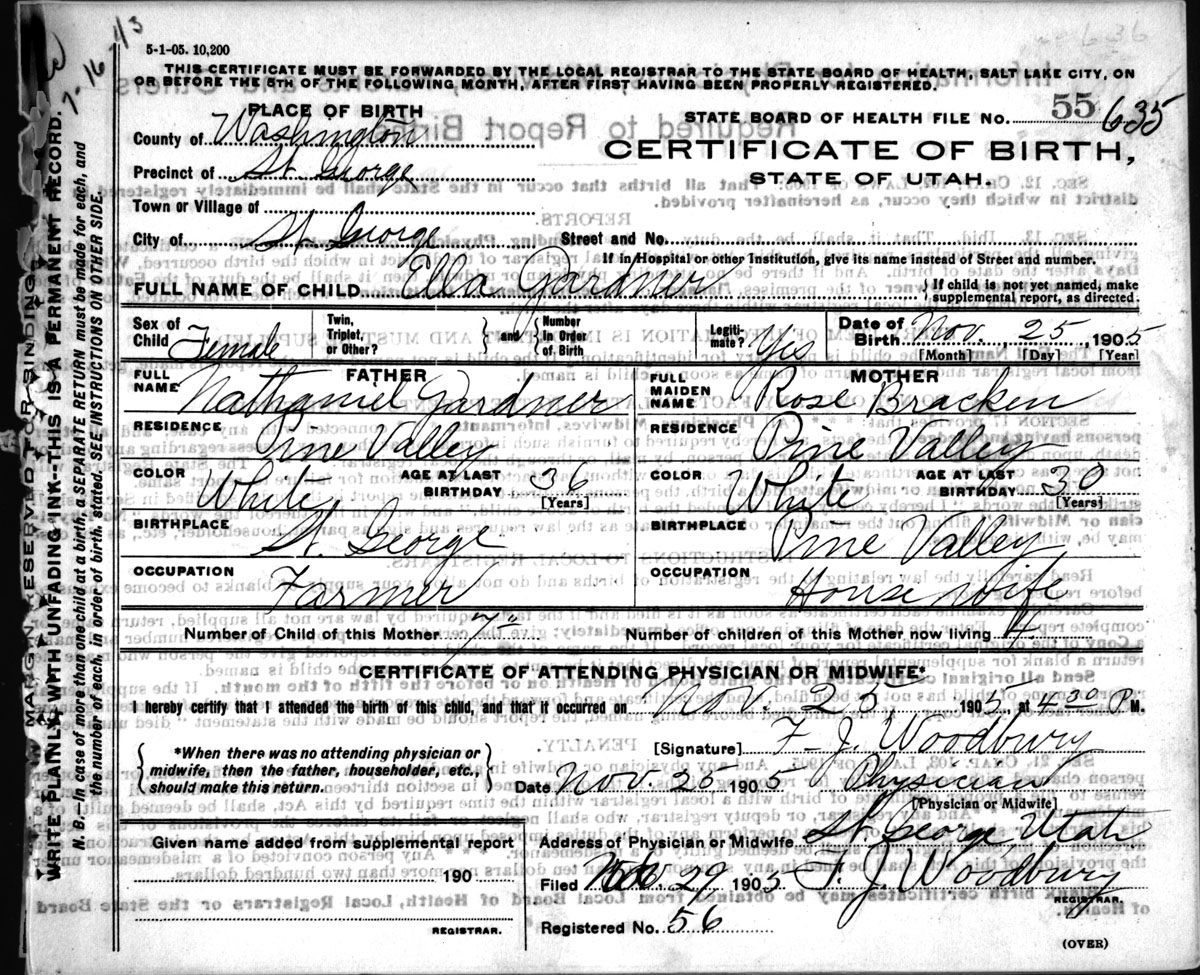 7-16-43
636
5-1-05. 10,200
THIS CERTIFICATE MUST BE FORWARDED BY THE LOCAL REGISTRAR TO THE STATE BOARD OF HEALTH, SALT LAKE CITY, ON
OR BEFORE THE 5TH OF THE FOLLOWING MONTH, AFTER FIRST HAVING BEEN PROPERLY REGISTERED.
PLACE OF BIRTH
STATE BOARD OF HEALTH FILE NO. 55 635
County of Washington
CERTIFICATE OF BIRTH,
Precinct of St George
STATE OF UTAH.
Town or Village of
City of St George Street and No.
If in Hospital or other Institution, give its name instead of Street and number.
FULL NAME OF CHILD Ella Gardner { If child is not yet named, make supplemental report, as directed.
Sex of Child Female Twin, Triplet, or Other? } and { Number in Order of Birth Legitimate? Yis Date of Birth Nov. 25, 1905
[Month] [Day] [Year]
FATHER
MOTHER
FULL NAME Nathaniel Gardner
FULL MAIDEN NAME Rose Bracken
RESIDENCE Pine Valley
RESIDENCE Pine Valley
COLOR White AGE AT LAST BIRTHDAY 36 [Years]
COLOR White AGE AT LAST BIRTHDAY 30 [Years]
BIRTHPLACE St. George
BIRTHPLACE Pine Valley
OCCUPATION Farmer
OCCUPATION House wife
Number of Child of this Mother 7" Number of children of this Mother now living 4
CERTIFICATE OF ATTENDING PHYSICIAN OR MIDWIFE*
I hereby certify that I attended the birth of this child, and that it occurred on Nov. 25 1905 at 4 30 P M.
{ *When there was no attending physician or
midwife, then the father, householder, etc.,
should make this return. }
[Signature] F. J. Woodbury
Date Nov. 25 1905 Physician
[Physician or Midwife]
Given name added from supplemental report
190
REGISTRAR.
Address of Physician or Midwife St George, Utah
Filed Nov. 29 1905 F. J. Woodbury
REGISTRAR.
Registered No. 56
(OVER)
MARGIN RESERVED FOR BINDING
WRITE PLAINLY WITH UNFADING INK--THIS IS A PERMANENT RECORD.
N. B.--In case of more than one child at a birth, a SEPARATE RETURN must be made for each, and
the number of each, in order of birth, stated. SEE INSTRUCTIONS ON OTHER SIDE.